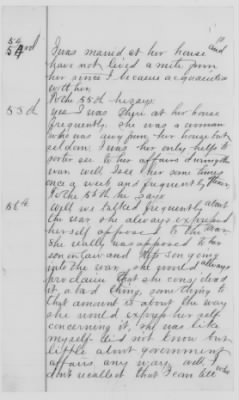 54
54th I was married at her house and
have not lived a mile from
her since I became acquainted
with her.
To the 55th he says
55th Yes I was there at her house
frequently. She was a woman
who was away from her house but
seldom. I was her only help to
sorter see to her affairs during the
war. Well I see her some times
once a week and frequently more.
To the 56th he says
56th Well we talked frequently about
the war she always expressed
herself opposed to the war.
She really was opposed to her
son in law and her son going
into the war, she would always
proclaim that she considered
it a bad thing, something to
that amount is about the way
she would express her self
concerning it, she was like
myself did not know but
little about government
affairs any way. Well I
dont recollect that I can tell who